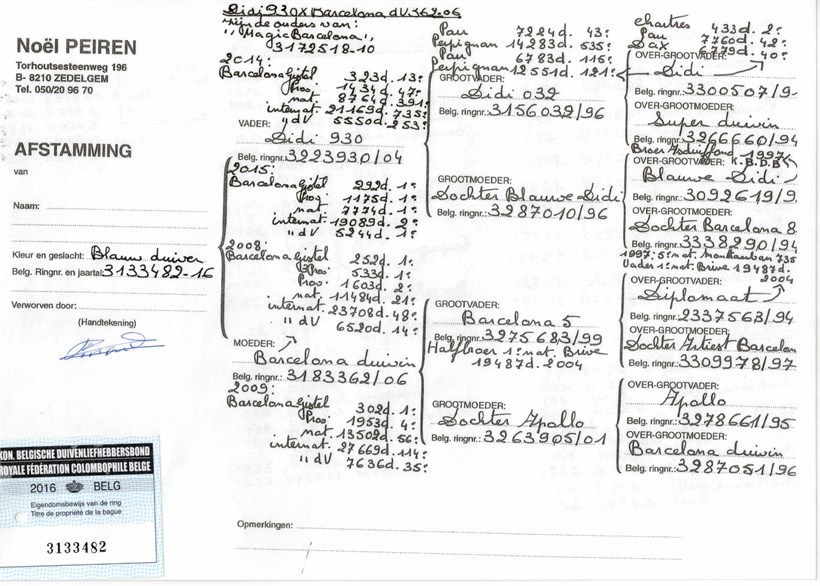 Noël PEIREN
Torhoutsesteenweg 196
B- 8210 ZEDELGEM
Tel. 050/20 96 70
AFSTAMMING
van
Naam:
Kleur en geslacht: Blauw duiver
Belg. Ringnr. en jaartal: 3133482-16
Verworven door:
(Handtekening)
KON. BELGISCHE DUIVENLIEFHEBBERSBOND
ROYALE FÉDÉRATION COLOMBOPHILE BELGE
2016 BELG
Eigendomsbewijs van de ring
Titre de propriété de la bague
3133482
Didi 930 X Barcelona dV. 362-06
zijn de ouders van:
"Magic Barcelona"
3172518-10
2014:
Barcelona Gistel 323d. 13e
Prov 1434d. 47e
nat 8764d. 391e
internat. 21169d. 735e
" dV 5550d. 253e
VADER:
Didi 930
Belg. ringnr. 3223930/04
2015:
Barcelona Gistel 292d. 1e
Prov 1175d. 1e
nat 7774d. 1e
internat. 19089d. 2e
" dV 5244d. 1e
2008:
Barcelona Gistel 252d. 1e
Prov 533d. 1e
Prov 1603d. 2e
nat. 11484d. 21e
internat. 23708d. 48e
" dV 6520d. 14e
MOEDER:
Barcelona duivin
Belg. ringnr. 3183362/06
2009:
Barcelona Gistel 302d. 1e
Prov 1953d. 4e
nat 13502d. 56e
internat. 27669d. 114e
" dV 7636d. 35e
Pau 7224d. 43e
Perpignan 14283d. 535e
Pau 6783d. 115e
Perpignan 12551d. 121e
GROOTVADER:
Didi 032
Belg. ringnr.: 3156032/96
GROOTMOEDER:
Dochter Blauwe Didi
Belg. ringnr.: 3287010/96
GROOTVADER:
Barcelona 5
Belg. ringnr.: 3275683/99
Halfbroer 1e nat. Brive
19487d. 2004
GROOTMOEDER:
Dochter Apollo
Belg. ringnr.: 3263905/01
chartres 433d. 2e
Pau 7760d. 42e
Dax 6779d. 40e
OVER-GROOTVADER:
Didi
Belg. ringnr.: 3300507/9
OVER-GROOTMOEDER:
Super duivin
Belg. ringnr.: 3266660/94
1997 K.B.D.B
OVER-GROOTVADER:
Blauwe Didi
Belg. ringnr.: 3092619/9
OVER-GROOTMOEDER:
Dochter Barcelona 8
Belg. ringnr.: 3338290/94
1997: 5e nat. Montauban 735
Vader 1e nat. Brive 19487d.
2004
OVER-GROOTVADER:
Diplomaat
Belg. ringnr.: 2337563/94
OVER-GROOTMOEDER:
Dochter Artiest Barcelon
Belg. ringnr.: 3309978/97
OVER-GROOTVADER:
Apollo
Belg. ringnr.: 3278661/95
OVER-GROOTMOEDER:
Barcelona duivin
Belg. ringnr.: 3287051/96
Opmerkingen: